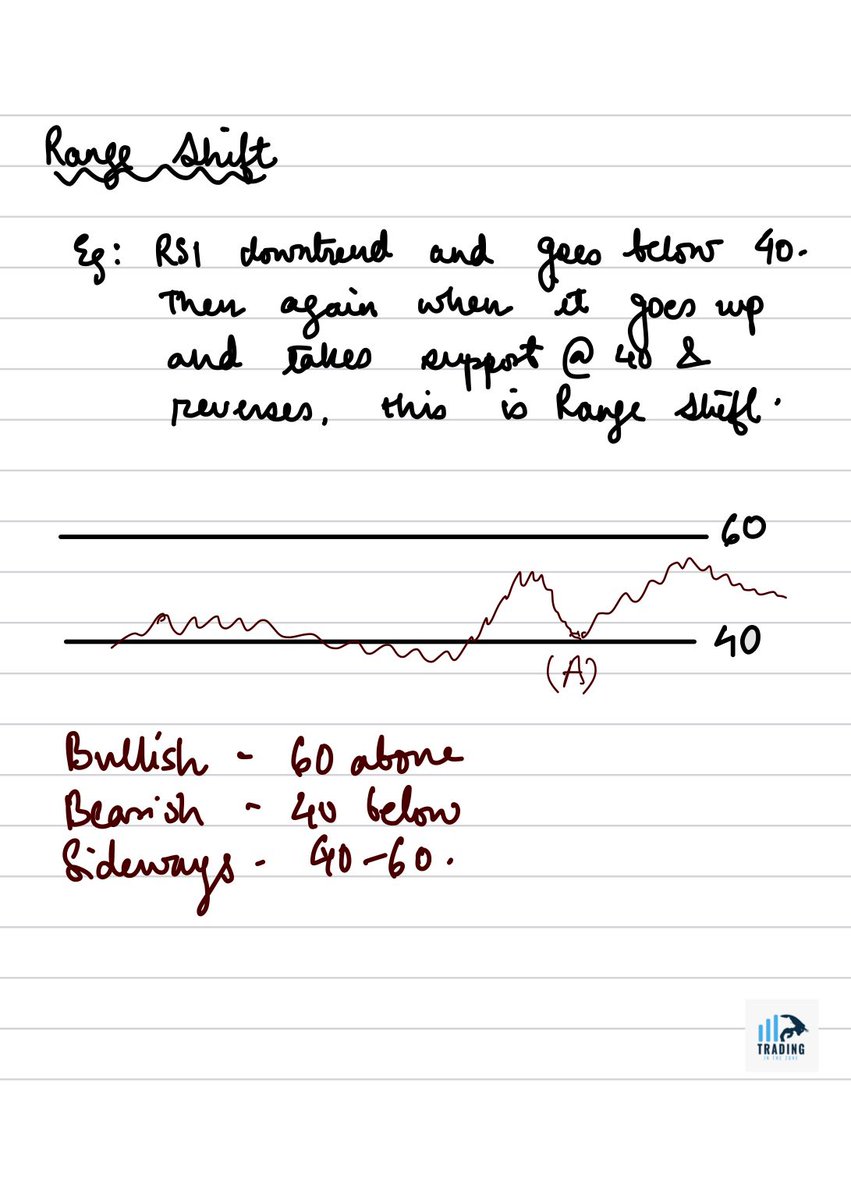 Range Shift
Eg: RSI downtrend and goes below 40.
Then again when it goes up
and takes support @ 40 &
reverses, this is Range Shift.
60
40
(A)
Bullish - 60 above
Bearish - 40 below
Sideways - 40-60.
TRADING
IN THE ZONE